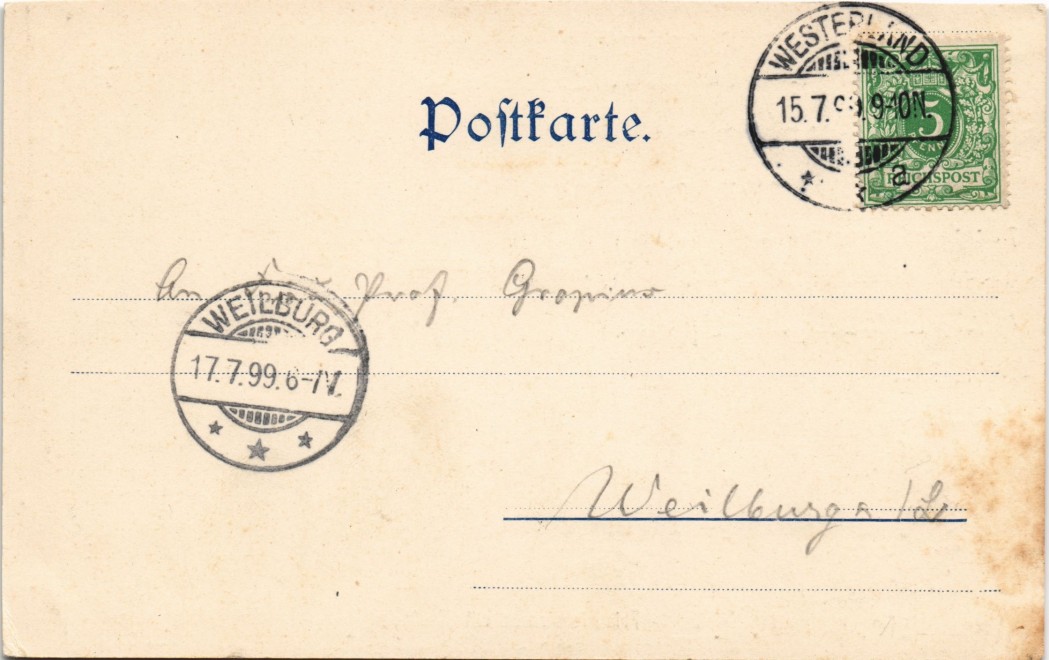 WESTERLAND
15.7.99.9-10N.
a
5
REICHSPOST
Poſtkarte.
An Prof. Gropius
WEILBURG
17.7.99.6-7N.
Weilburg a/L